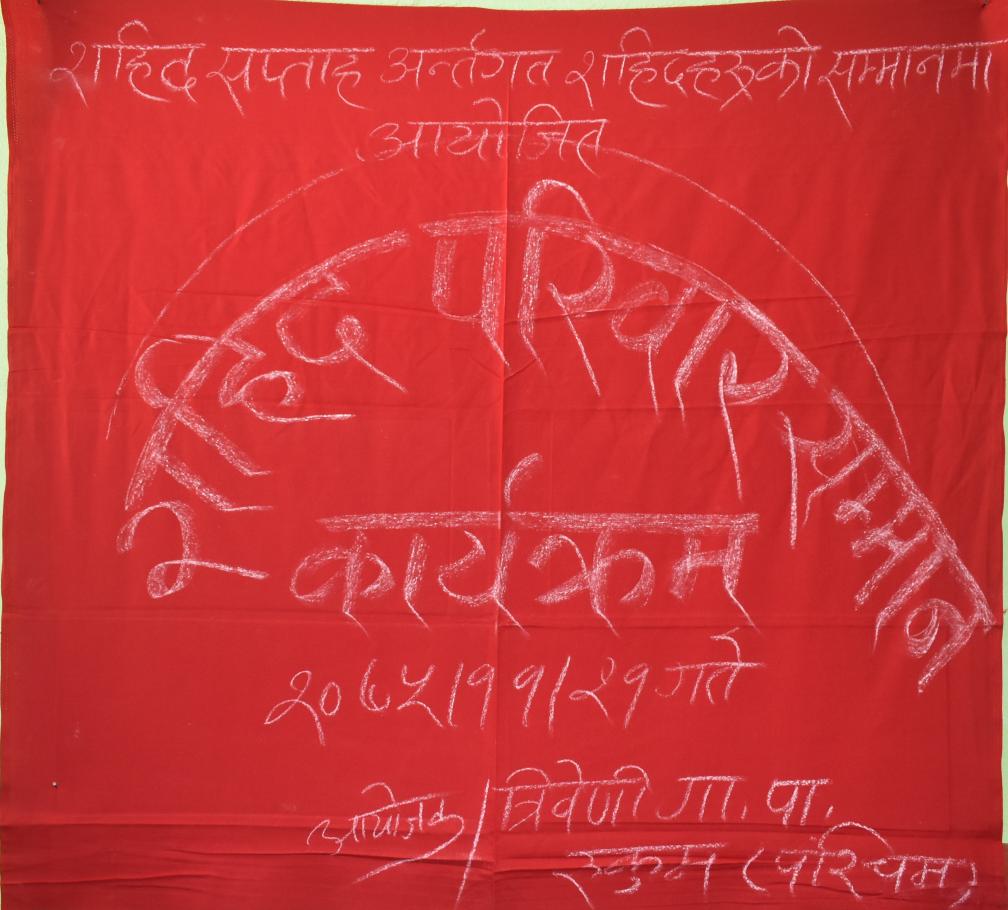 शहिद सप्ताह अर्न्तगत शहिदहरूको सम्मानमा
आयोजित
शहिद परिवार सम्मान
कार्यक्रम
२०७५/११/२१ गते
आयोजक/त्रिवेणी गा. पा.
रुकुम (पश्चिम)